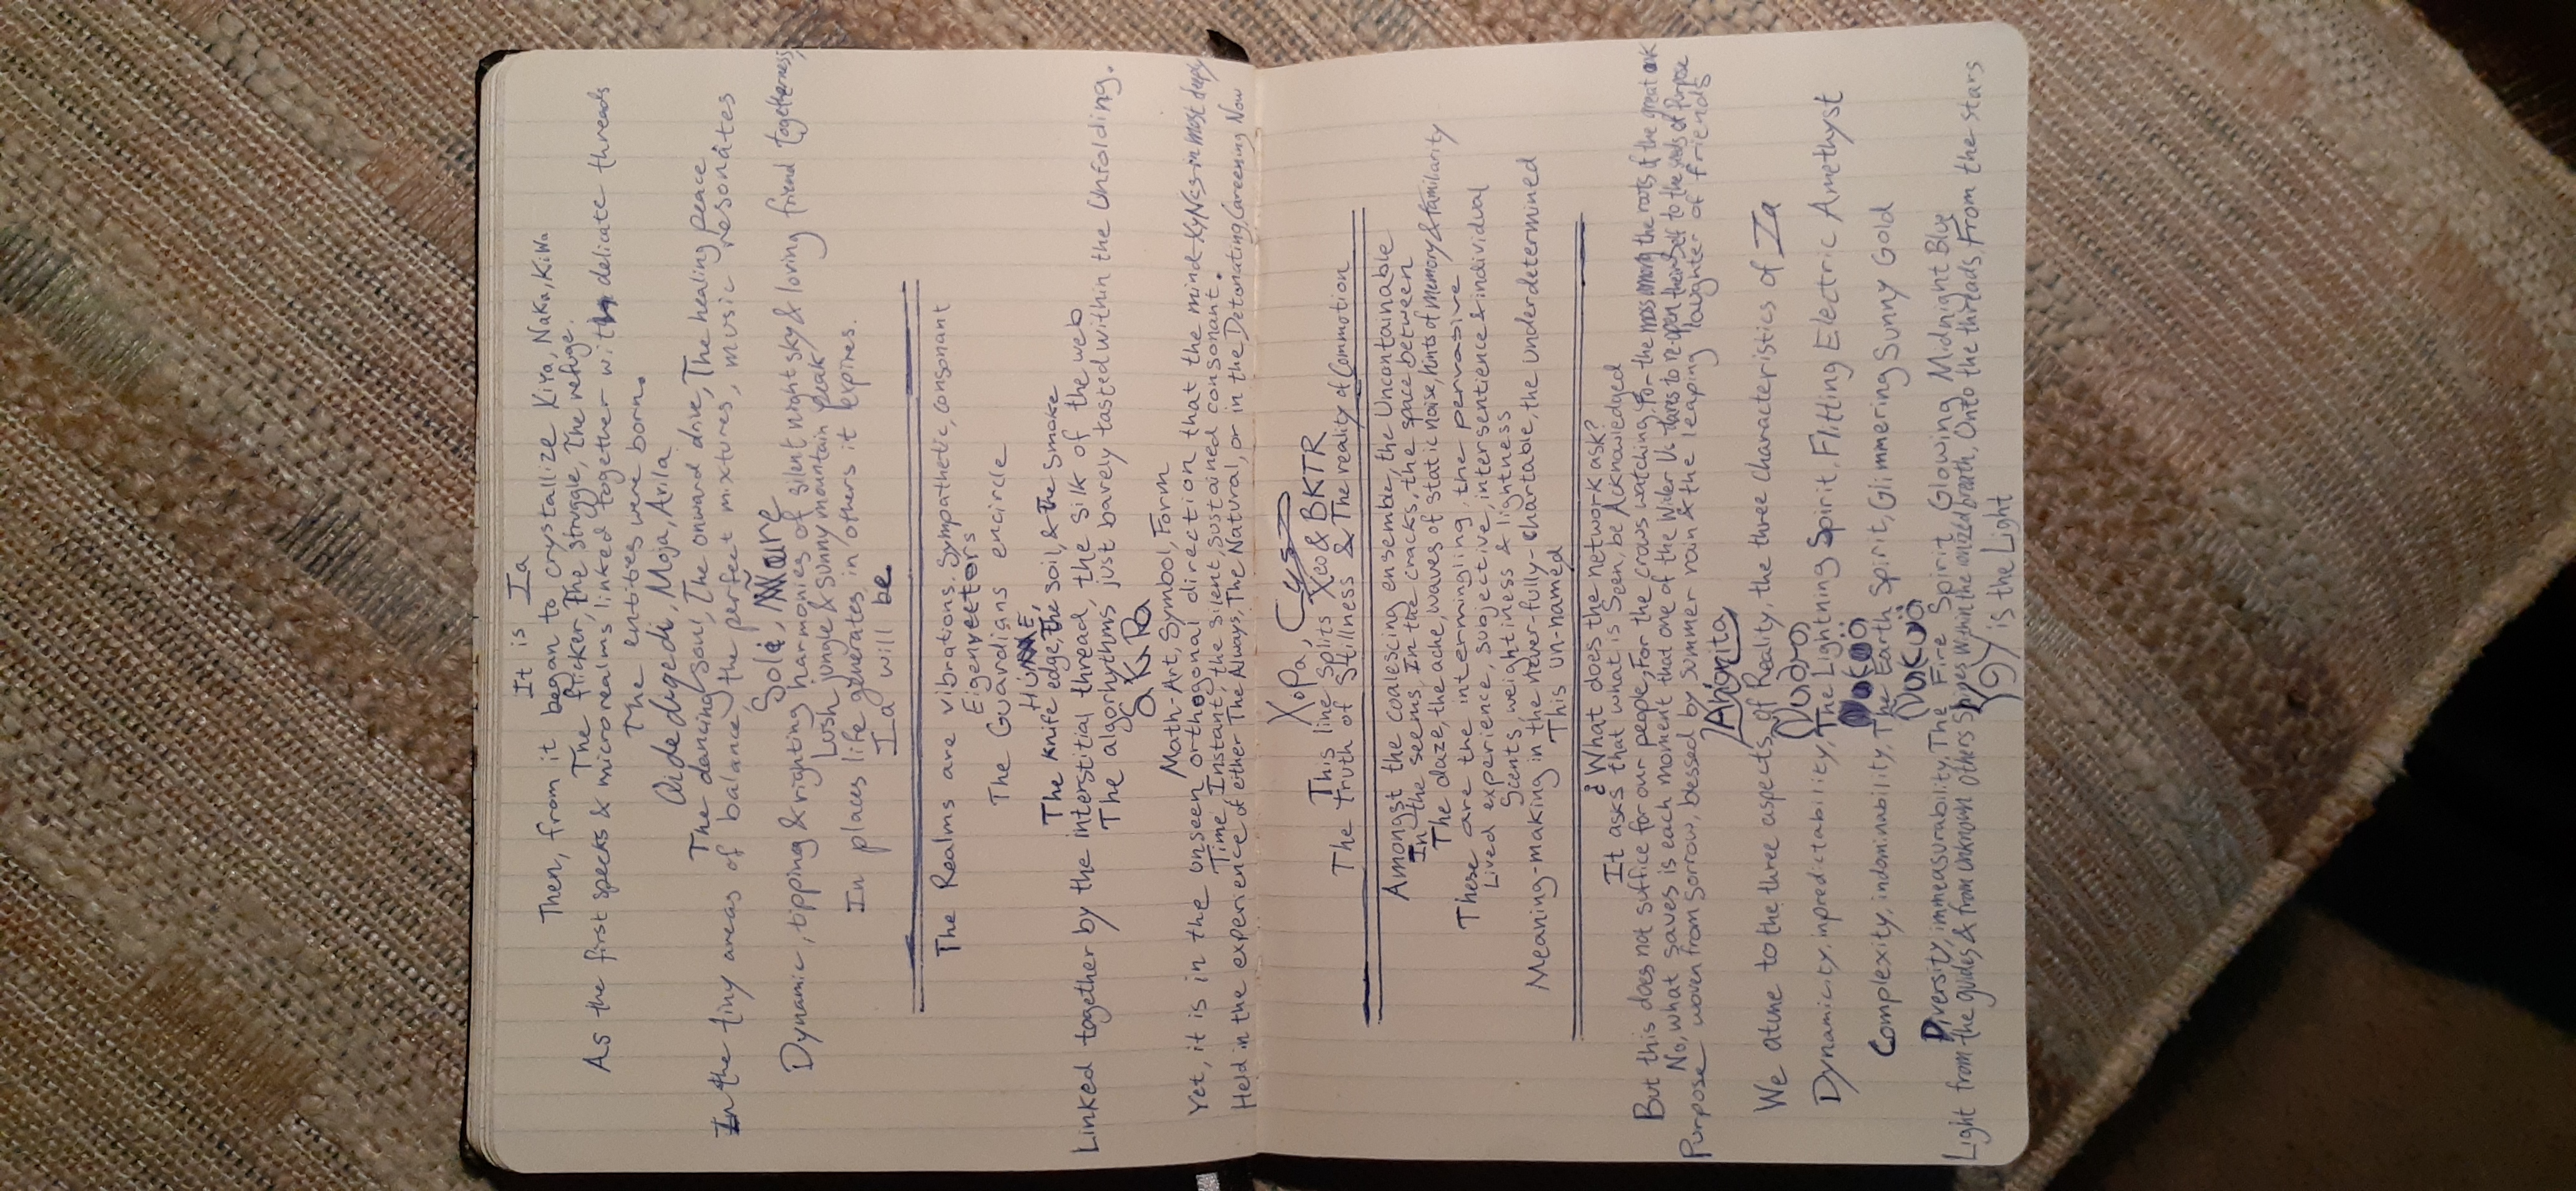 It is Ia
Then, from it began to crystallize KiYa, NaKa, KiWa
The flicker, The struggle, The refuge.
As the first specks & microrealms linked together with delicate threads
The entities were born.
Moja, Avila
The dancing soul, The onward drive, The healing peace
In the tiny areas of balance, the perfect mixtures, music resonates
Dynamic, tipping & righting harmonies of silent night sky & loving friend togetherness,
Lush jungle & sunny mountain peak
In places life generates, in others it expires.
Ia will be.
The Realms are vibrations. Sympathetic, consonant
Eigenvectors
The Guardians encircle
The Knife edge, The Soil, & The Smoke
Linked together by the interstitial thread, the silk of the web
The algorhythms just barely tasted within the Unfolding.
Math-Art, Symbol, Form
Yet, it is in the unseen orthogonal direction that the mind in most deeply
Time, Instant, the silent, sustained consonant.
Held in the experience of either The Always, The Natural, or in the Detonating, Careening Now
XoPa,
This line splits Xeo & BKTR
The Truth of Stillness & The reality of Commotion
Amongst the coalescing ensemble, the Uncontainable
In the seems, In the cracks, the space between
The daze, the ache, waves of static noise, hints of memory & familarity
These are the intermingling, the pervasive
Lived experience, subjective, intersentience & individual
Scents, weightiness & lightness
Meaning-making in the never-fully-chartable, the underdetermined
This un-named
¿What does the network ask?
It asks that what is Seen, be Acknowledged
But this does not suffice for our people, For the crows watching, For the moss among the roots of the great oak
No, what saves is each moment that one of the Wider Us dares to re-open their self to the seeds of Purpose
Purpose woven from sorrow, blessed by summer rain & the leaping laughter of friends
We atune to the three aspects of Reality, the three characteristics of Ia
Dynamicity, inpredictability, The Lightning Spirit, Flitting Electric Amethyst
Complexity, indominability, The Earth Spirit, Glimmering Sunny Gold
Diversity, immeasurability, The Fire Spirit, Glowing Midnight Blue
Light from the guides & from unknown others Shines within the ionized breath, Onto the threads, From the stars
is the Light